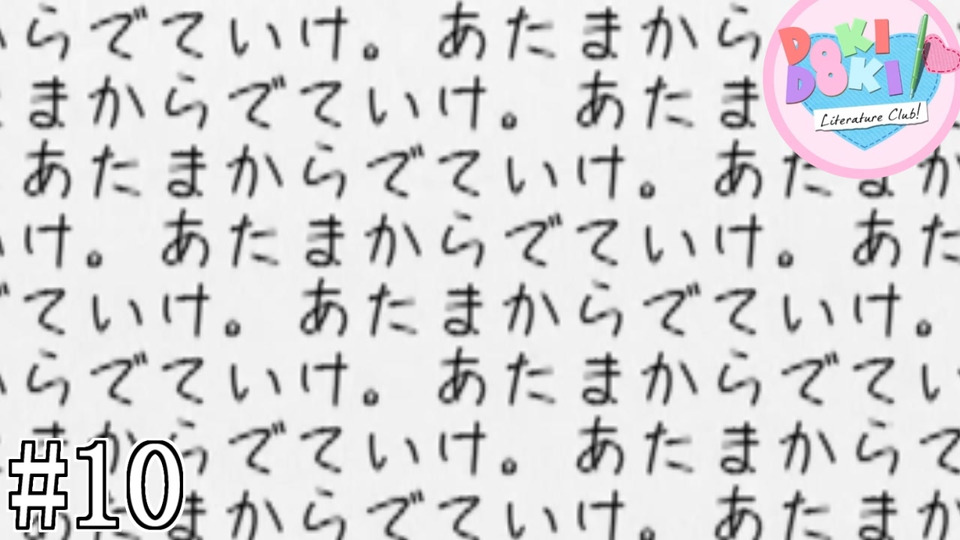 らでていけ。 あたまから
まからでていけ。 あたま
あたまからでていけ。 あたまか
け。 あたまからでていけ。 あた
ていけ。 あたまからでていけ。
らでていけ。 あたまからでてい
まからでていけ。 あたまから
あたまからでていけ。 あたまか
DOKI
DOKI
Literature Club!
#10